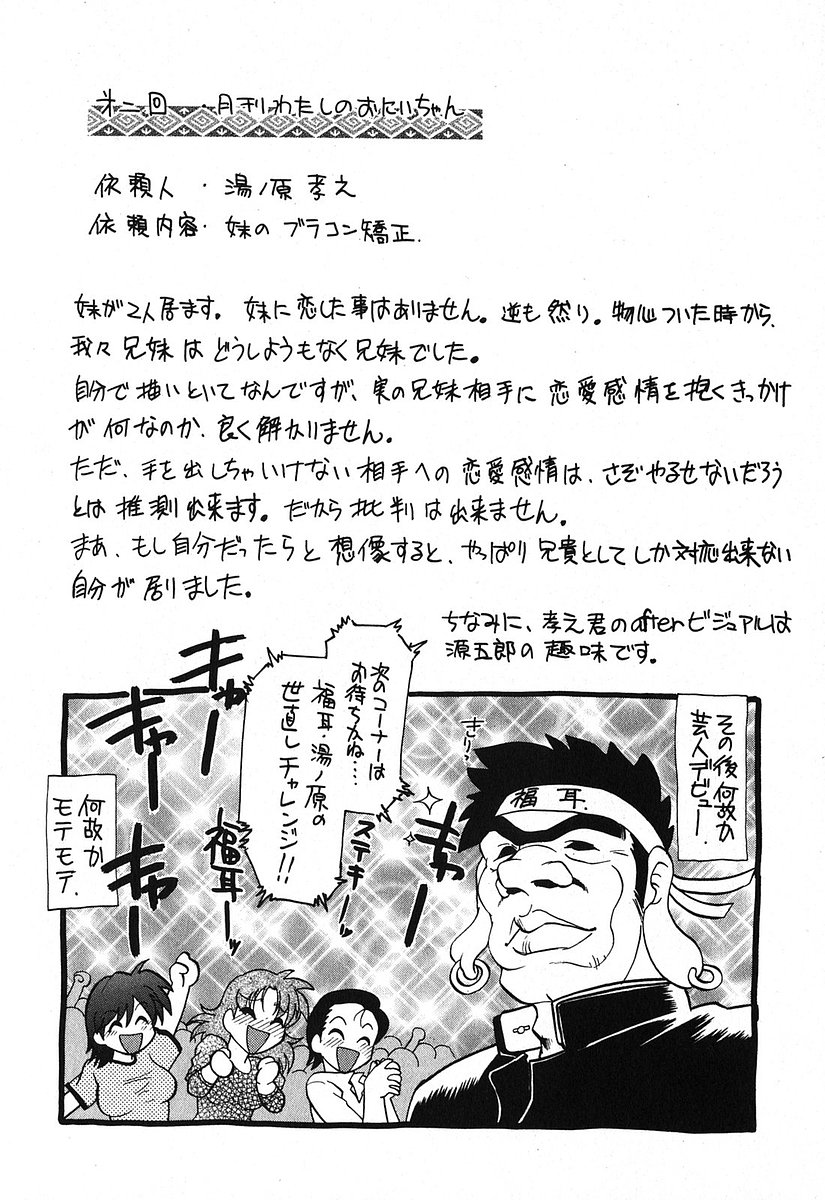 第二回 ・月刊わたしのおにいちゃん
依頼人・湯ノ原孝之
依頼内容・妹のブラコン矯正.
妹が2人居ます。妹に恋した事はありません。逆も然り。物心ついた時から、
我々兄妹はどうしようもなく兄妹でした。
自分で描いといてなんですが、実の兄妹相手に恋愛感情を抱くきっかけ
が何なのか、良く解かりません。
ただ、手を出しちゃいけない相手への恋愛感情は、さぞやるせないだろう
とは推測出来ます。だから批判は出来ません。
まあ、もし自分だったらと想像すると、やっぱり兄貴としてしか対応出来ない
自分が居りました。
ちなみに、孝之君のafterビジュアルは
源五郎の趣味です。
その後何故か
芸人デビュー.
きりっ
福耳.
次のコーナーは
お待ちかね…
福耳・湯ノ原の
世直しチャレンジ!!
ステキーッ
キャー
キャー
キャー
キャー
福耳ーッ
何故か
モテモテ.